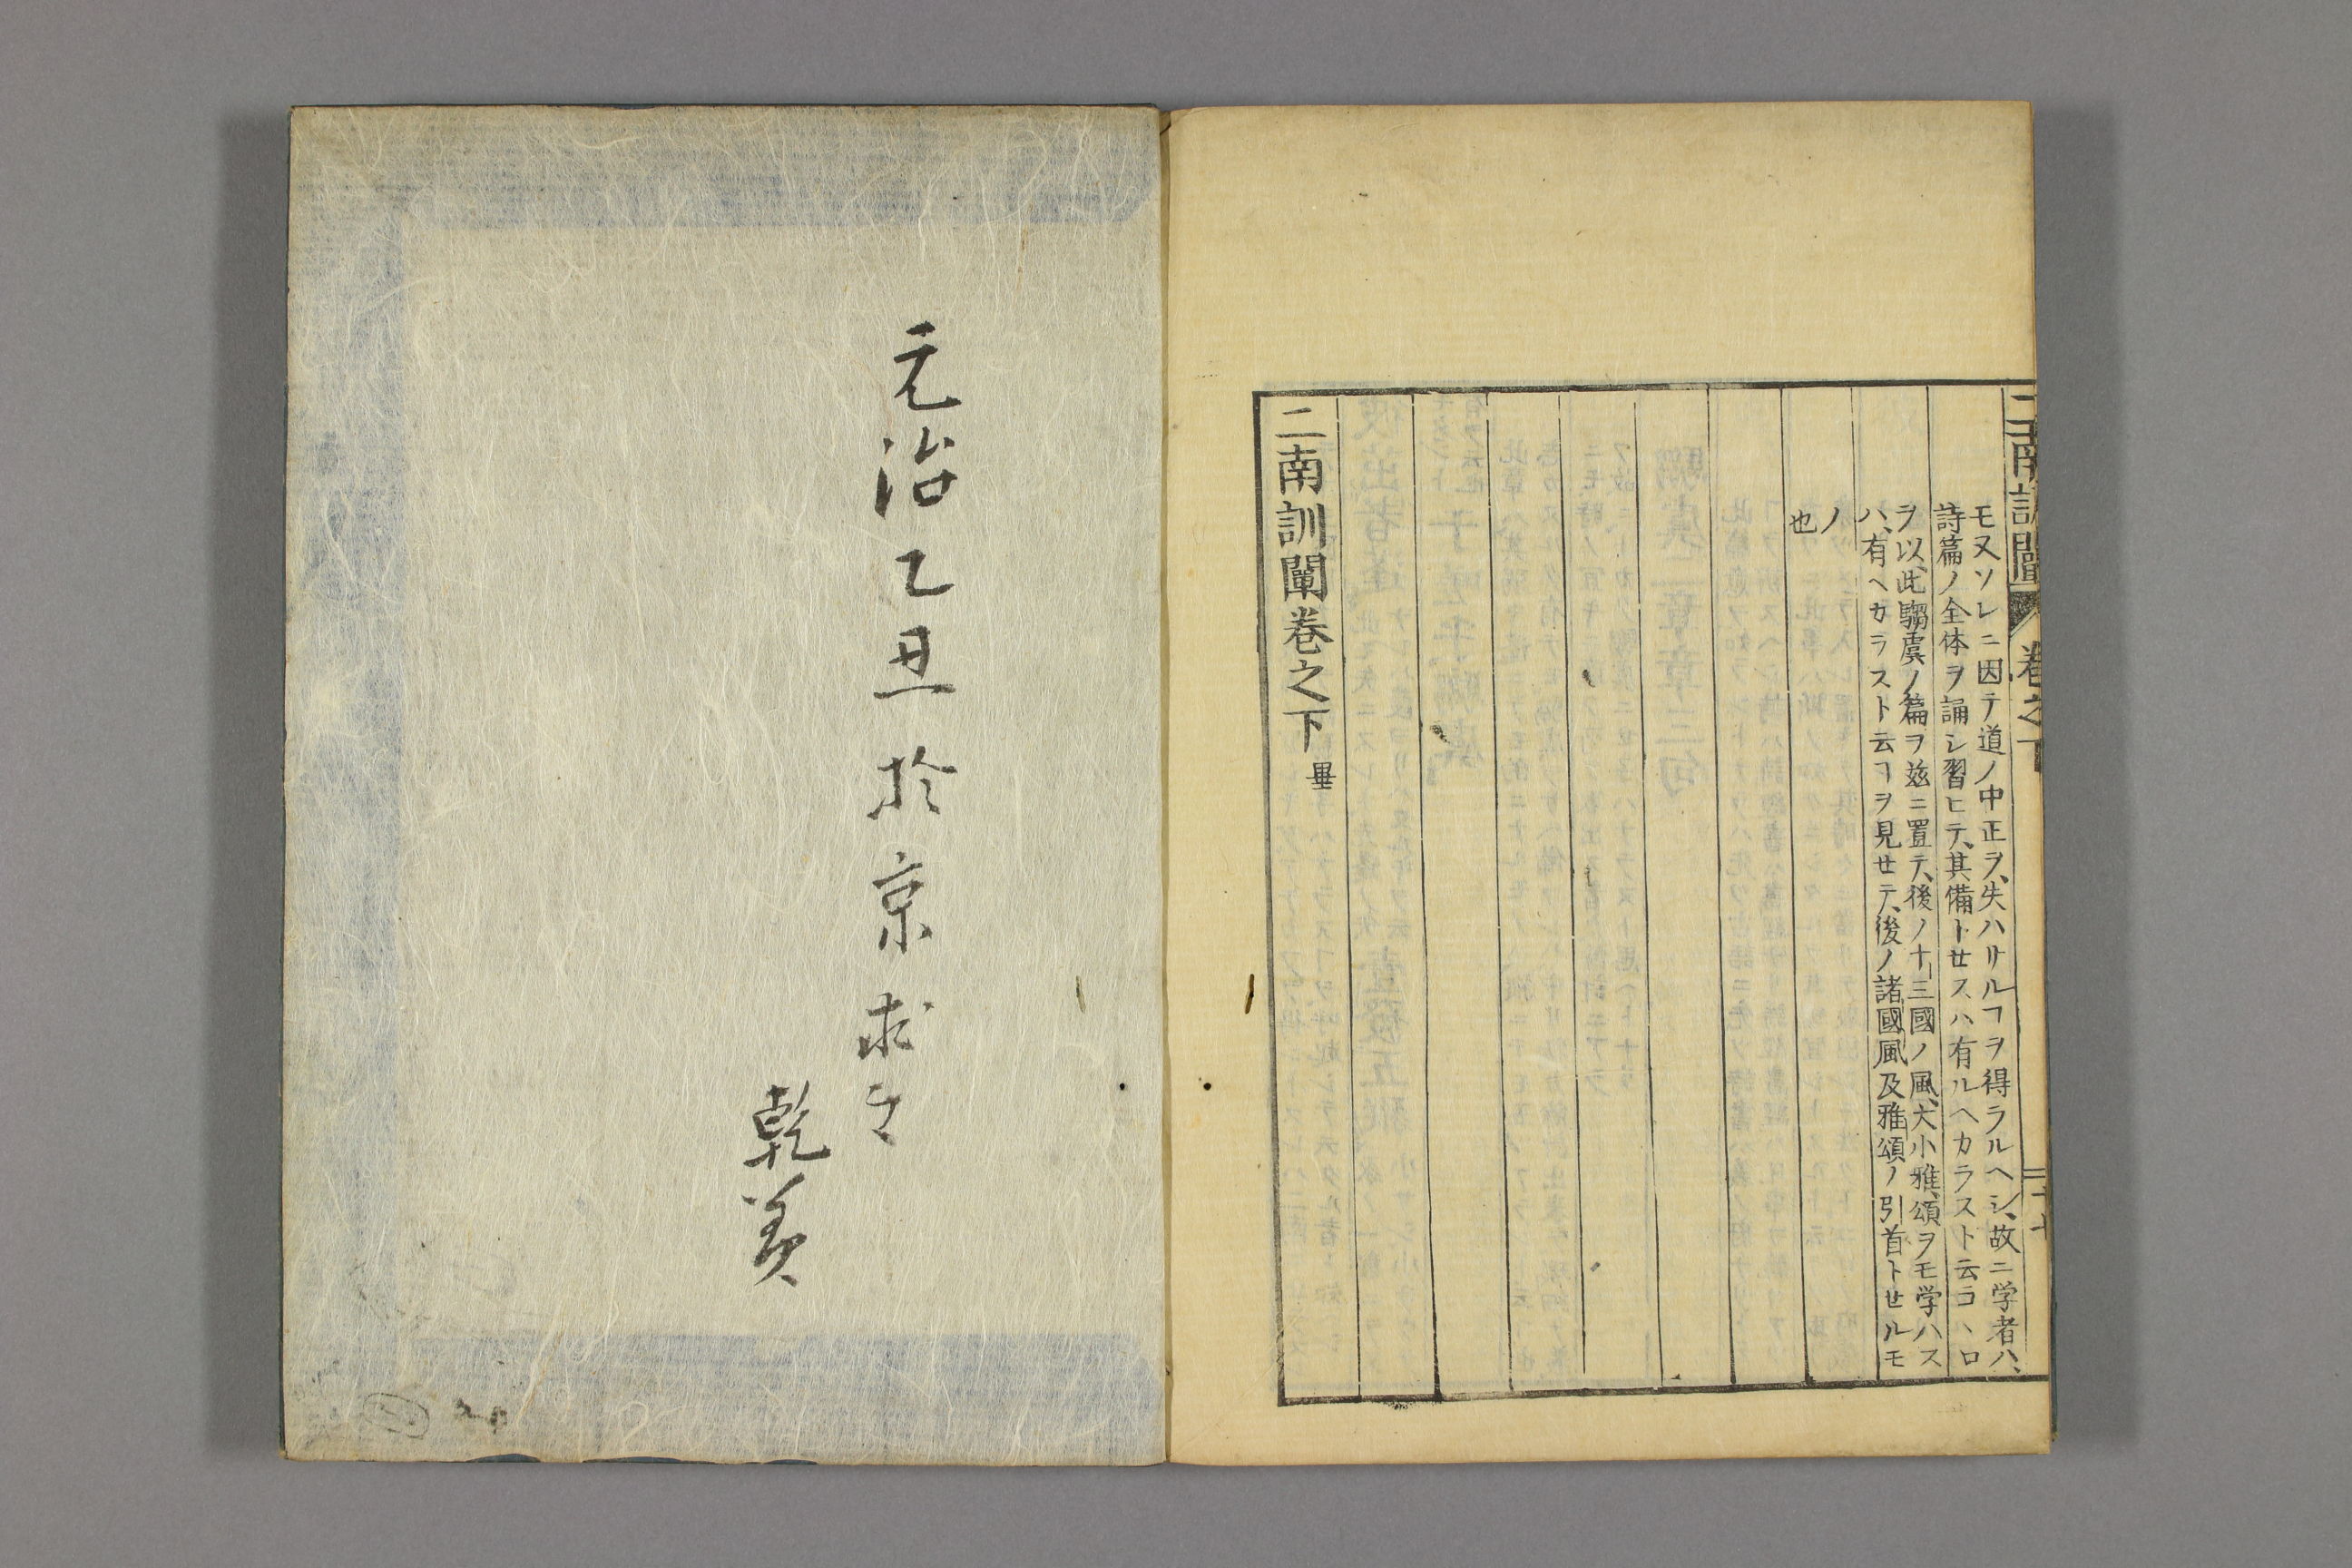 二南訓闡 卷之下
モ又ソレニ因テ道ノ中正ヲ、失ハサルヿヲ得ラルヘシ、故ニ学者ハ、
詩篇ノ全体ヲ誦シ習ヒテ、其備トセスハ有ルヘカラスト云コ、ロ
ヲ以、此騶虞ノ篇ヲ玆ニ置テ、後ノ十三國ノ風、大小雅、頌ヲモ学ハス
ハ、有ヘカラスト云ヿヲ見せテ、後ノ諸國風及雅頌ノ引首トせルモ
ノ
也
二南訓闡卷之下 畢
元治乙丑於京求之
乾